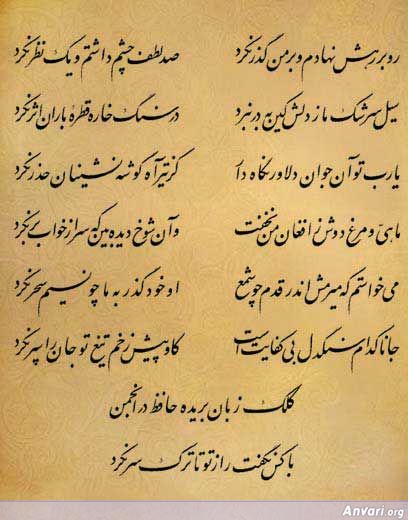 رو بر رهش نهادم و بر من گذر نکرد صد لطف چشم داشتم و یک نظر نکرد
سیل سرشک ما ز دلش کین به در نبرد در سنگ خاره قطره باران اثر نکرد
یا رب تو آن جوان دلاور نگاه دار کز تیر آه گوشه نشینان حذر نکرد
ماهی و مرغ دوش ز افغان من نخفت وآن شوخ دیده بین که سر از خواب بر نکرد
می خواستم که میرمش اندر قدم چو شمع او خود گذر به ما چو نسیم سحر نکرد
جانا کدام سنگدل بی کفایت است کاو پیش زخم تیغ تو جان را سپر نکرد
کلک زبان بریده حافظ در انجمن
با کس نگفت راز تو تا ترک سر نکرد
Anvari.org